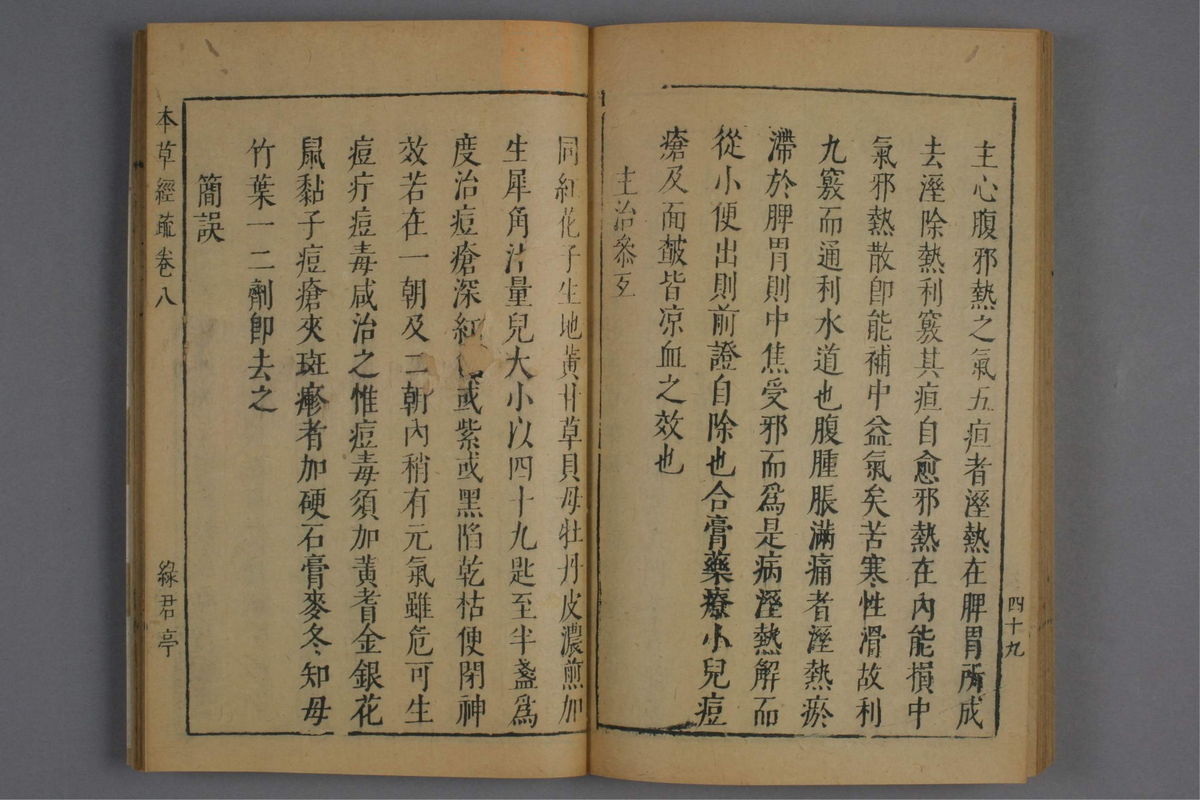 四十九
主心腹邪熱之氣五疸者溼熱在脾胃所成
去溼除熱利竅其疸自愈邪熱在內能損中
氣邪熱散卽能補中益氣矣苦寒性滑故利
九竅而通利水道也腹腫脹滿痛者溼熱瘀
滯於脾胃則中焦受邪而爲是病溼熱解而
從小便出則前證自除也合膏藥療小兒痘
瘡及面皶皆凉血之效也
主治叅互
同紅花子生地黃甘草貝母牡丹皮濃煎加
生犀角汁量兒大小以四十九匙至半盞爲
度治痘瘡深紅或紫或黑陷乾枯便閉神
效若在一朝及二朝內稍有元氣雖危可生
痘疔痘毒咸治之惟痘毒須加黃耆金銀花
鼠黏子痘瘡夾斑疹者加硬石膏麥冬知母
竹葉一二劑卽去之
簡誤
本草經疏卷八
綠君亭